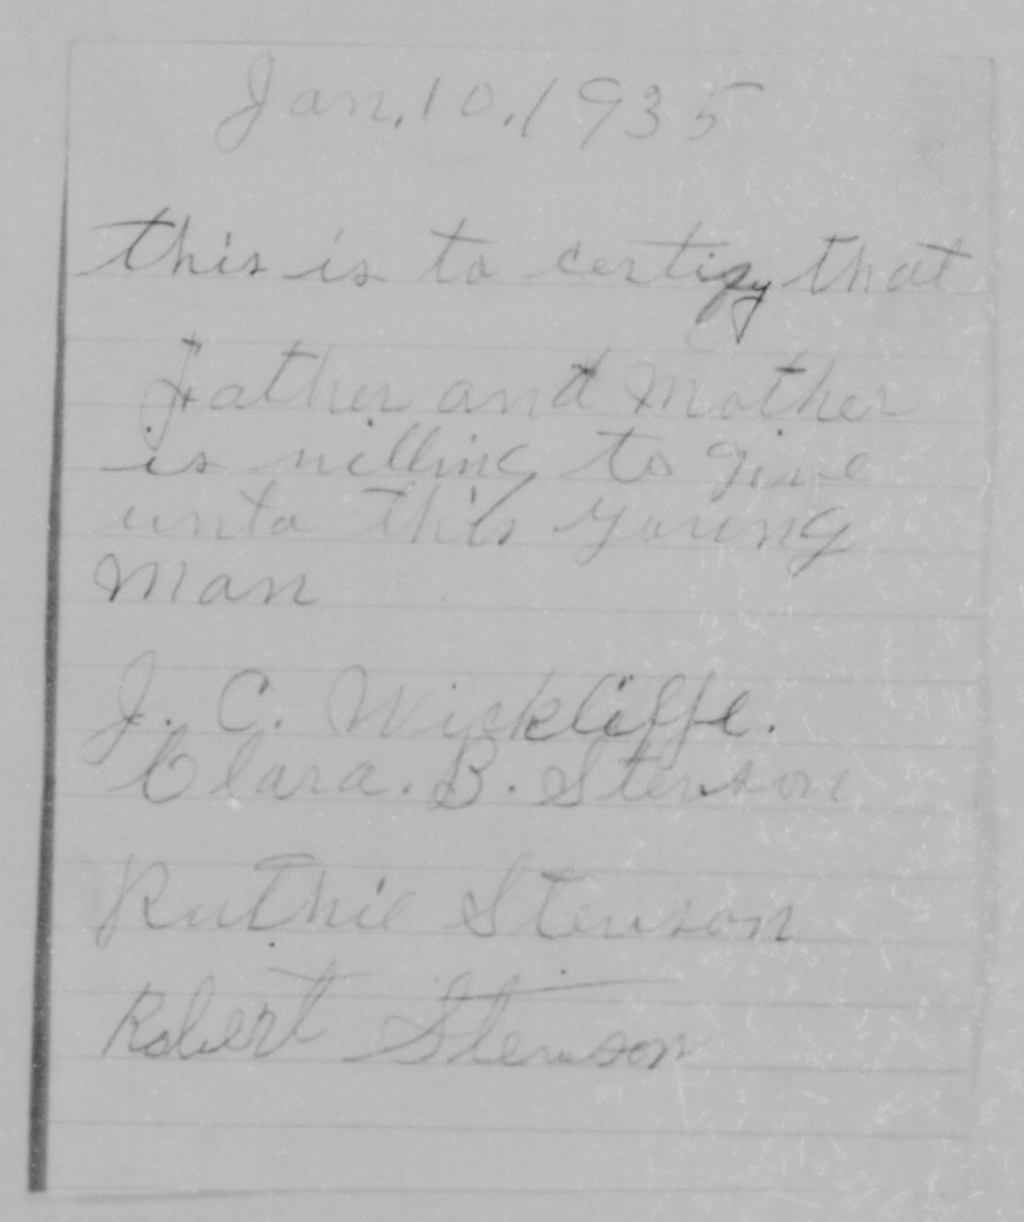 Jan. 10. 1935
this is to certify that
Father and Mother
is willing to give
unto this young
Man
J. C. Wickliffe.
Clara. B. Stenson
Ruthie Stenson
Robert Stenson